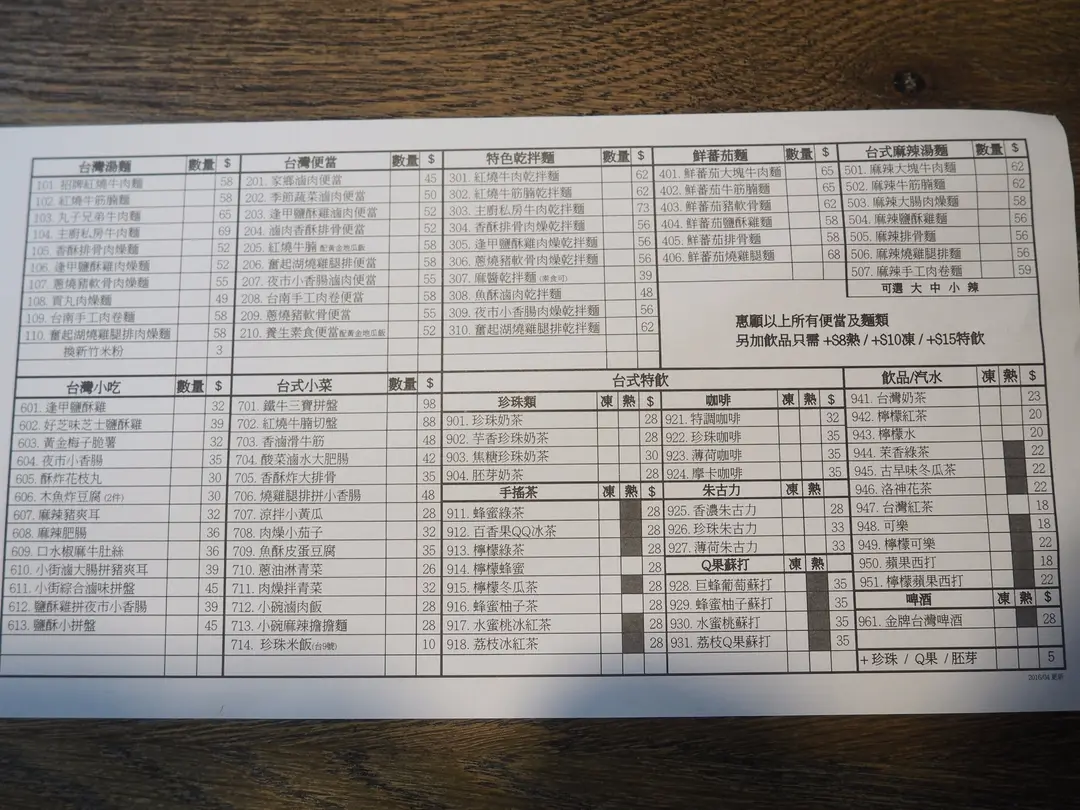 台灣湯麵 數量 $
101. 招牌紅燒牛肉麵 58
102. 紅燒牛筋腩麵 58
103. 丸子兄弟牛肉麵 65
104. 主廚私房牛肉麵 69
105. 香酥排骨肉燥麵 52
106. 逢甲鹽酥雞肉燥麵 52
107. 蔥燒豬軟骨肉燥麵 55
108. 貢丸肉燥麵 49
109. 台南手工肉卷麵 58
110. 奮起湖燒雞腿排肉燥麵 58
換新竹米粉 3
台灣便當 數量 $
201. 家鄉滷肉便當 45
202. 季節蔬菜滷肉便當 50
203. 逢甲鹽酥雞滷肉便當 52
204. 滷肉香酥排骨便當 52
205. 紅燒牛腩 配黃金地瓜飯 58
206. 奮起湖燒雞腿排便當 58
207. 夜市小香腸滷肉便當 55
208. 台南手工肉卷便當 58
209. 蔥燒豬軟骨便當 55
210. 養生素食便當 配黃金地瓜飯 52
特色乾拌麵 數量 $
301. 紅燒牛肉乾拌麵 62
302. 紅燒牛筋腩乾拌麵 62
303. 主廚私房牛肉乾拌麵 73
304. 香酥排骨肉燥乾拌麵 56
305. 逢甲鹽酥雞肉燥乾拌麵 56
306. 蔥燒豬軟骨肉燥乾拌麵 56
307. 麻醬乾拌麵 (素食可) 39
308. 魚酥滷肉乾拌麵 48
309. 夜市小香腸肉燥乾拌麵 56
310. 奮起湖燒雞腿排乾拌麵 62
鮮蕃茄麵 數量 $
401. 鮮蕃茄大塊牛肉麵 65
402. 鮮蕃茄牛筋腩麵 65
403. 鮮蕃茄豬軟骨麵 62
404. 鮮蕃茄鹽酥雞麵 58
405. 鮮蕃茄排骨麵 58
406. 鮮蕃茄燒雞腿麵 68
台式麻辣湯麵 數量 $
501. 麻辣大塊牛肉麵 62
502. 麻辣牛筋腩麵 62
503. 麻辣大腸肉燥麵 58
504. 麻辣鹽酥雞麵 56
505. 麻辣排骨麵 56
506. 麻辣燒雞腿排麵 56
507. 麻辣手工肉卷麵 59
可選 大 中 小 辣
惠顧以上所有便當及麵類
另加飲品只需 +$8熱 / +$10凍 / +$15特飲
台灣小吃 數量 $
601. 逢甲鹽酥雞 32
602. 好芝味芝士鹽酥雞 39
603. 黃金梅子脆薯 32
604. 夜市小香腸 35
605. 酥炸花枝丸 30
606. 木魚炸豆腐 (2件) 30
607. 麻辣豬爽耳 32
608. 麻辣肥腸 36
609. 口水椒麻牛肚絲 36
610. 小街滷大腸拼豬爽耳 39
611. 小街綜合滷味拼盤 45
612. 鹽酥雞拼夜市小香腸 39
613. 鹽酥小拼盤 45
台式小菜 數量 $
701. 鐵牛三寶拼盤 98
702. 紅燒牛腩切盤 88
703. 香滷滑牛筋 48
704. 酸菜滷水大肥腸 42
705. 香酥炸大排骨 35
706. 燒雞腿排拼小香腸 48
707. 涼拌小黃瓜 28
708. 肉燥小茄子 32
709. 魚酥皮蛋豆腐 35
710. 蔥油淋青菜 26
711. 肉燥拌青菜 32
712. 小碗滷肉飯 28
713. 小碗麻辣擔擔麵 28
714. 珍珠米飯(台9號) 10
台式特飲
珍珠類 凍 熱 $
901. 珍珠奶茶 28
902. 芋香珍珠奶茶 28
903. 焦糖珍珠奶茶 30
904. 胚芽奶茶 28
手搖茶 凍 熱 $
911. 蜂蜜綠茶 28
912. 百香果QQ冰茶 28
913. 檸檬綠茶 28
914. 檸檬蜂蜜 28
915. 檸檬冬瓜茶 28
916. 蜂蜜柚子茶 28
917. 水蜜桃冰紅茶 28
918. 荔枝冰紅茶 28
咖啡 凍 熱 $
921. 特調咖啡 32
922. 珍珠咖啡 35
923. 薄荷咖啡 35
924. 摩卡咖啡 35
朱古力 凍 熱
925. 香濃朱古力 28
926. 珍珠朱古力 33
927. 薄荷朱古力 33
Q果蘇打 凍 熱
928. 巨蜂葡萄蘇打 35
929. 蜂蜜柚子蘇打 35
930. 水蜜桃蘇打 35
931. 荔枝Q果蘇打 35
飲品/汽水 凍 熱 $
941. 台灣奶茶 23
942. 檸檬紅茶 20
943. 檸檬水 20
944. 茉香綠茶 22
945. 古早味冬瓜茶 22
946. 洛神花茶 22
947. 台灣紅茶 18
948. 可樂 18
949. 檸檬可樂 22
950. 蘋果西打 18
951. 檸檬蘋果西打 22
啤酒 凍 熱 $
961. 金牌台灣啤酒 28
+ 珍珠 / Q果 / 胚芽 5
2016/04 更新